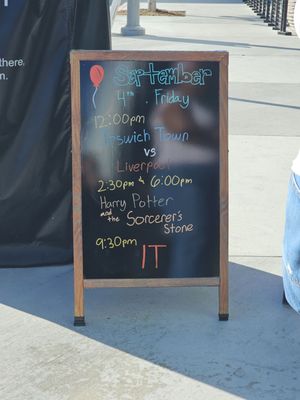 there.
m.
September
4th. Friday
12:00pm
Ipswich Town
vs
Liverpool
2:30pm & 6:00pm
Harry Potter
and the Sorcerer's
Stone
9:30pm
IT